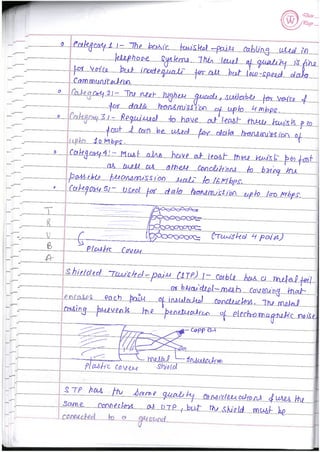 Category 1 :- The basic twisted-pair cabling used in
telephone systems. This level of quality is fine
for voice but inadequate for all but low-speed data
Communication
Category 2:- The next higher grade, suitable for voice &
for data transmission of upto 4mbps.
Category 3:- Required to have at least three twists per
foot & can be used for data transmission of
upto 10Mbps.
Category 4:- Must also have at least three twists per foot
as well as other conditions to bring the
possible transmission rate to 16Mbps.
Category 5:- Used for data transmission upto 100 Mbps.
T
R
U
B
A
(Twisted 4 pair)
Plastic Cover
Shielded Twisted-pair (STP) :- Cable has a metal foil
or braided-mesh covering that
encases each pair of insulated conductors. The metal
casing prevents the penetration of electromagnetic noise
Copper
metal Insulation
Plastic cover shield
STP has the same quality considerations & uses the
same connectors as UTP, but the shield must be
connected to a ground.